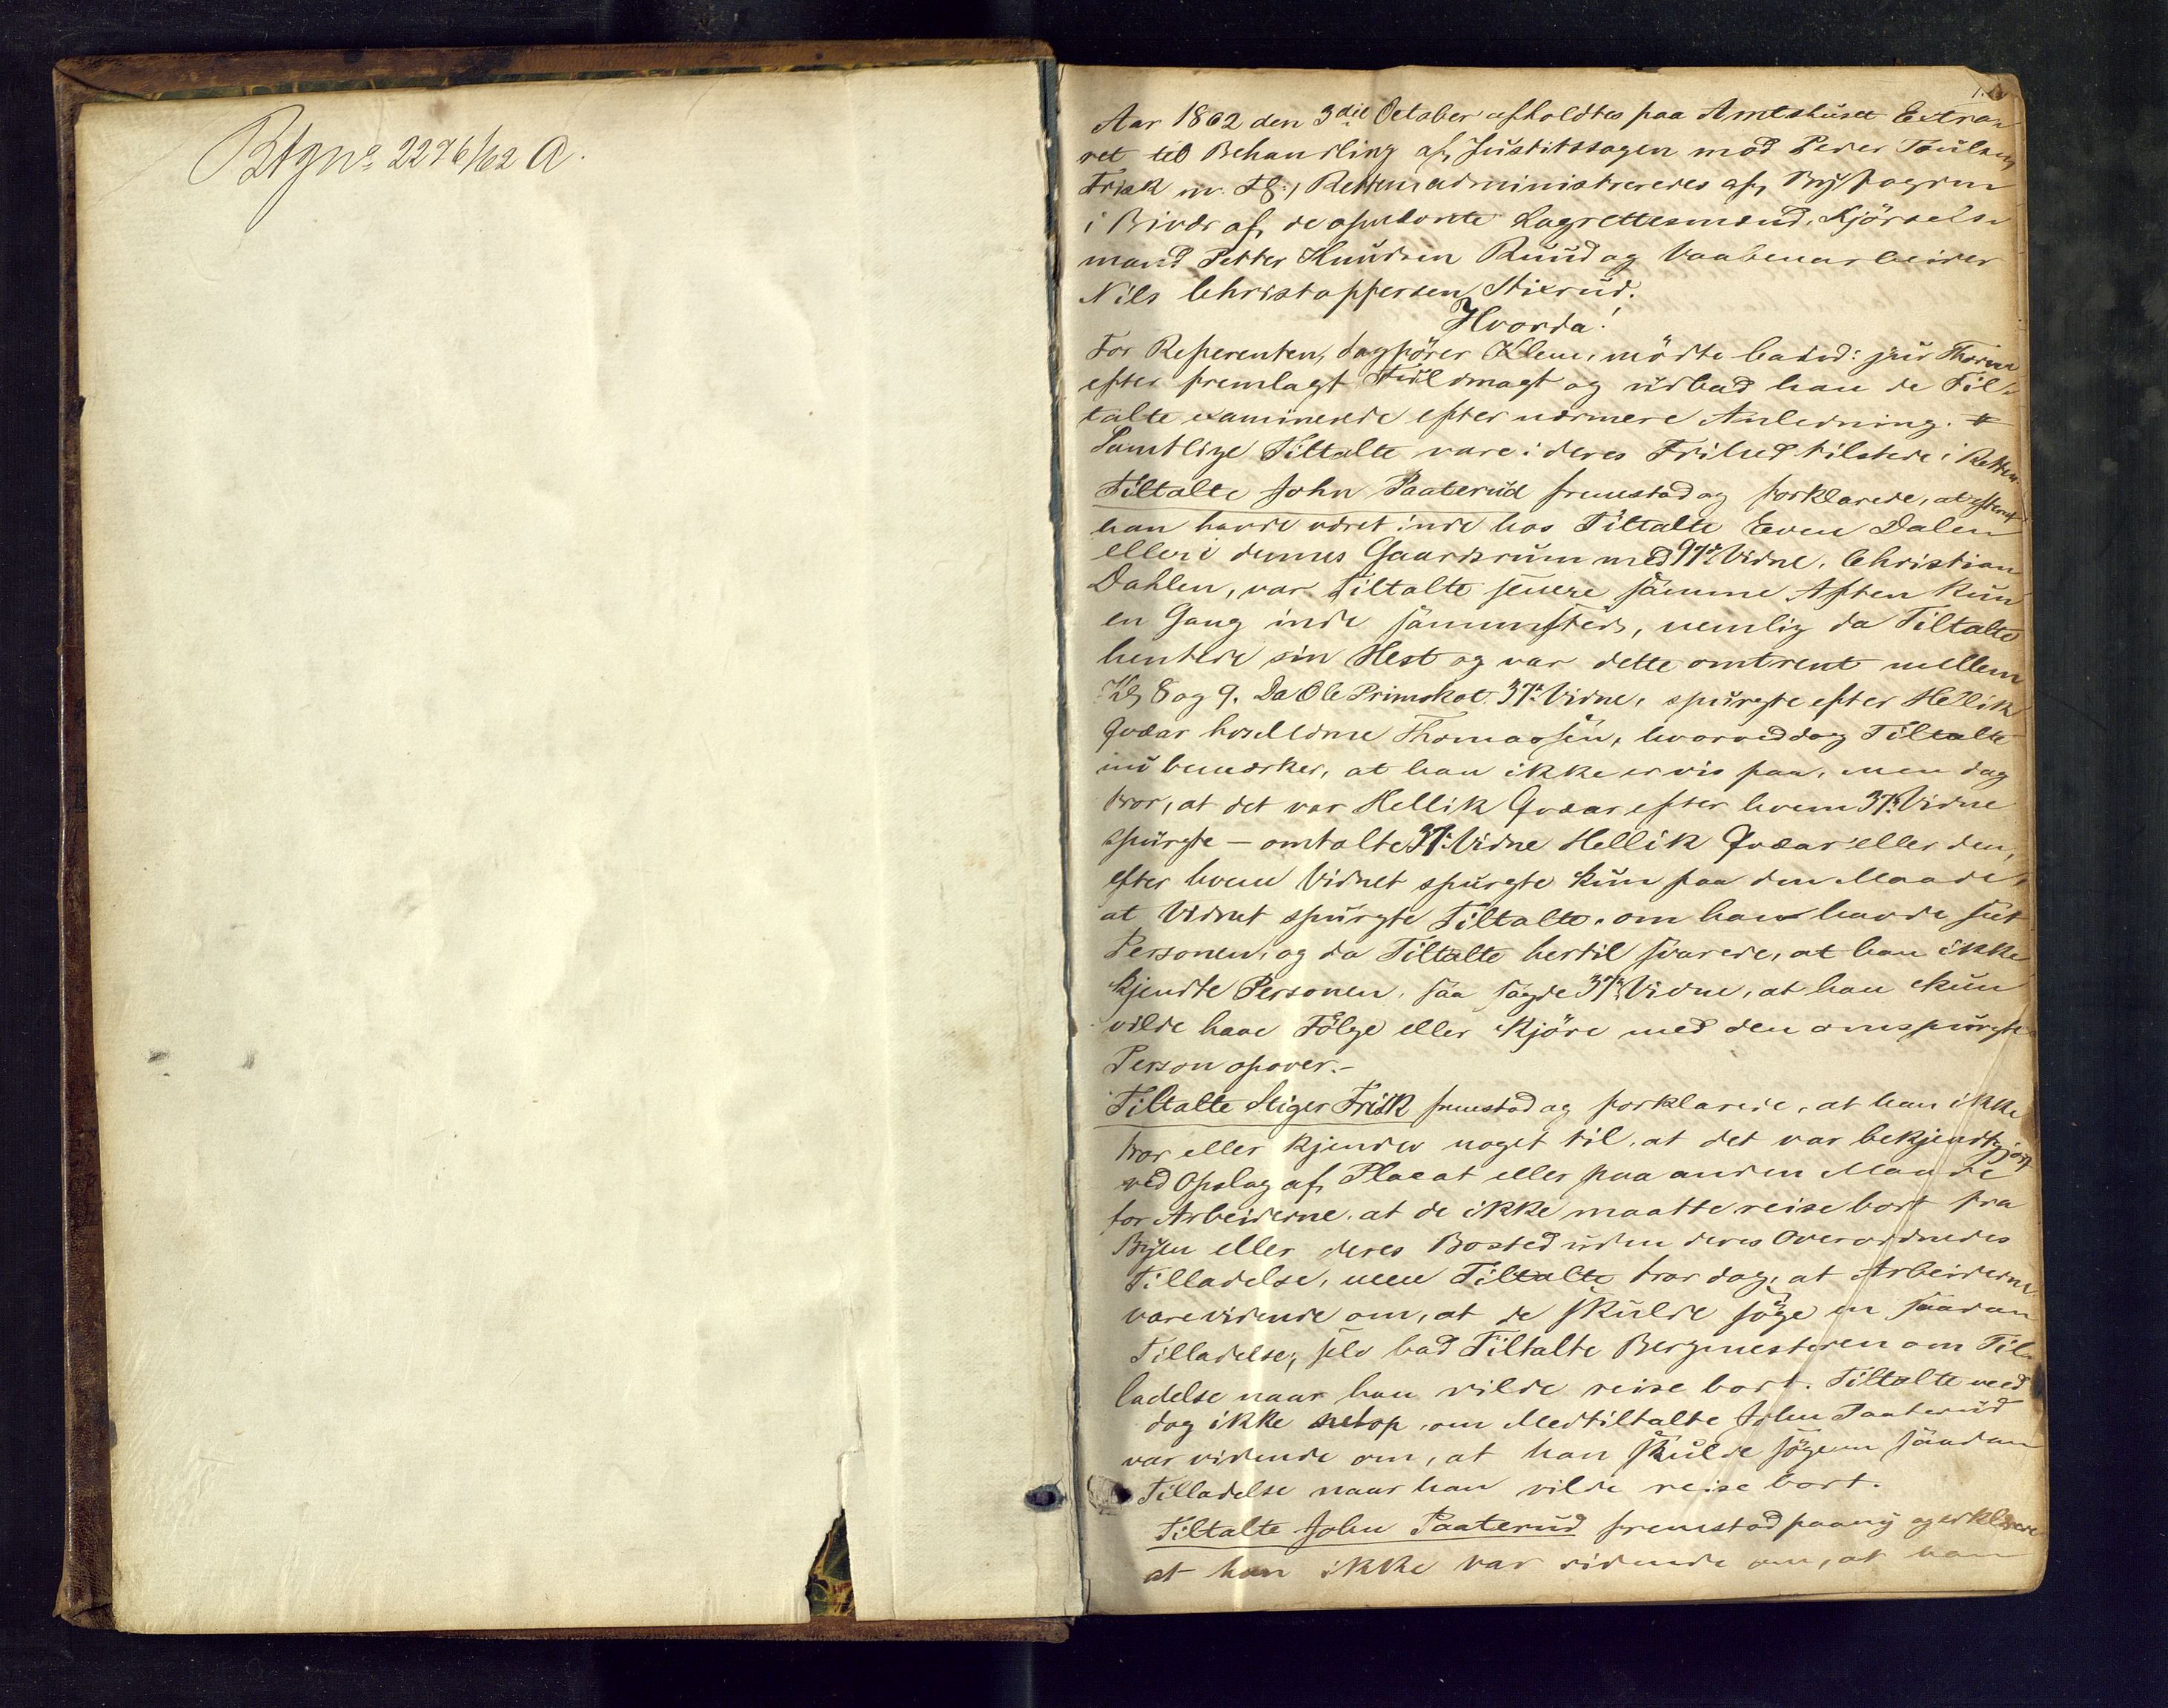 Btgno 2276/62 A.
1.
Aar 1862 den 3die October afholdtes paa Amtshuset Extra-
ret til Behandling af Justitssagen mod Peder Poulsen
Frisk m. Fl., Retten administreredes af Byfogden
i Bivær af de opnævnte Lagrettesmænd, Kjörsels-
mand Petter Knudsen Ruud og Vaabenarbeider
Nils Christoffersen Stixrud.
Hvorda!
For Referenten, Sagförer Klem, mödte cand: jur Thorne
efter fremlagt Fuldmagt og udbad han de Til-
talte examinerede efter nærmere Anledning.
Samtlige Tiltalte vare i deres Frihed tilstede i Retten.
Tiltalte John Paaterud fremstod og forklarede, at efterat
han havde været inde hos Tiltalte Even Dalen
eller i dennes Gaardsrum med 97de Vidne, Christian
Dahlen, var Tiltalte senere samme Aften kun
en Gang inde sammesteds, nemlig da Tiltalte
hentede sin Hest og var dette omtrent mellem
Kl 8 og 9. Da Ole Primskot 37te Vidne, spurgte efter Hellik
Qvear hos Thomassen, hvorved dog Tiltalte
nu bemærker, at han ikke er vis paa, men dog
tror, at det var Hellik Qvear efter hvem 37te Vidne
spurgte – omtalte 37te Vidne Hellik Qvear eller den,
efter hvem Vidnet spurgte kun paa den Maade,
at Vidnet spurgte Tiltalte, om han havde seet
Personen, og da Tiltalte hertil svarede, at han ikke
kjendte Personen, saa sagde 37te Vidne, at han kun
vilde have Fölge eller kjöre med den omspurgte
Person opover.–
Tiltalte Stiger Frisk fremstod og forklarede, at han ikke
tror eller kjender noget til, at det var bekjendtgjort
ved Opslag af Placat eller paa anden Maade
for Arbeiderne, at de ikke maatte reise bort fra
Byen eller deres Bosted uden deres Overordnedes
Tilladelse, men Tiltalte tror dog, at Arbeiderne
vare vidende om, at de skulde söge en saadan
Tilladelse; selv bad Tiltalte Bergmesteren om Til-
ladelse naar han vilde reise bort. Tiltalte veed
dog ikke netop, om Medtiltalte John Paaterud
var vidende om, at han skulde söge en saadan
Tilladelse naar han vilde reise bort.
Tiltalte John Paaterud fremstod paany og erklærede
at han ikke var vidende om, at han